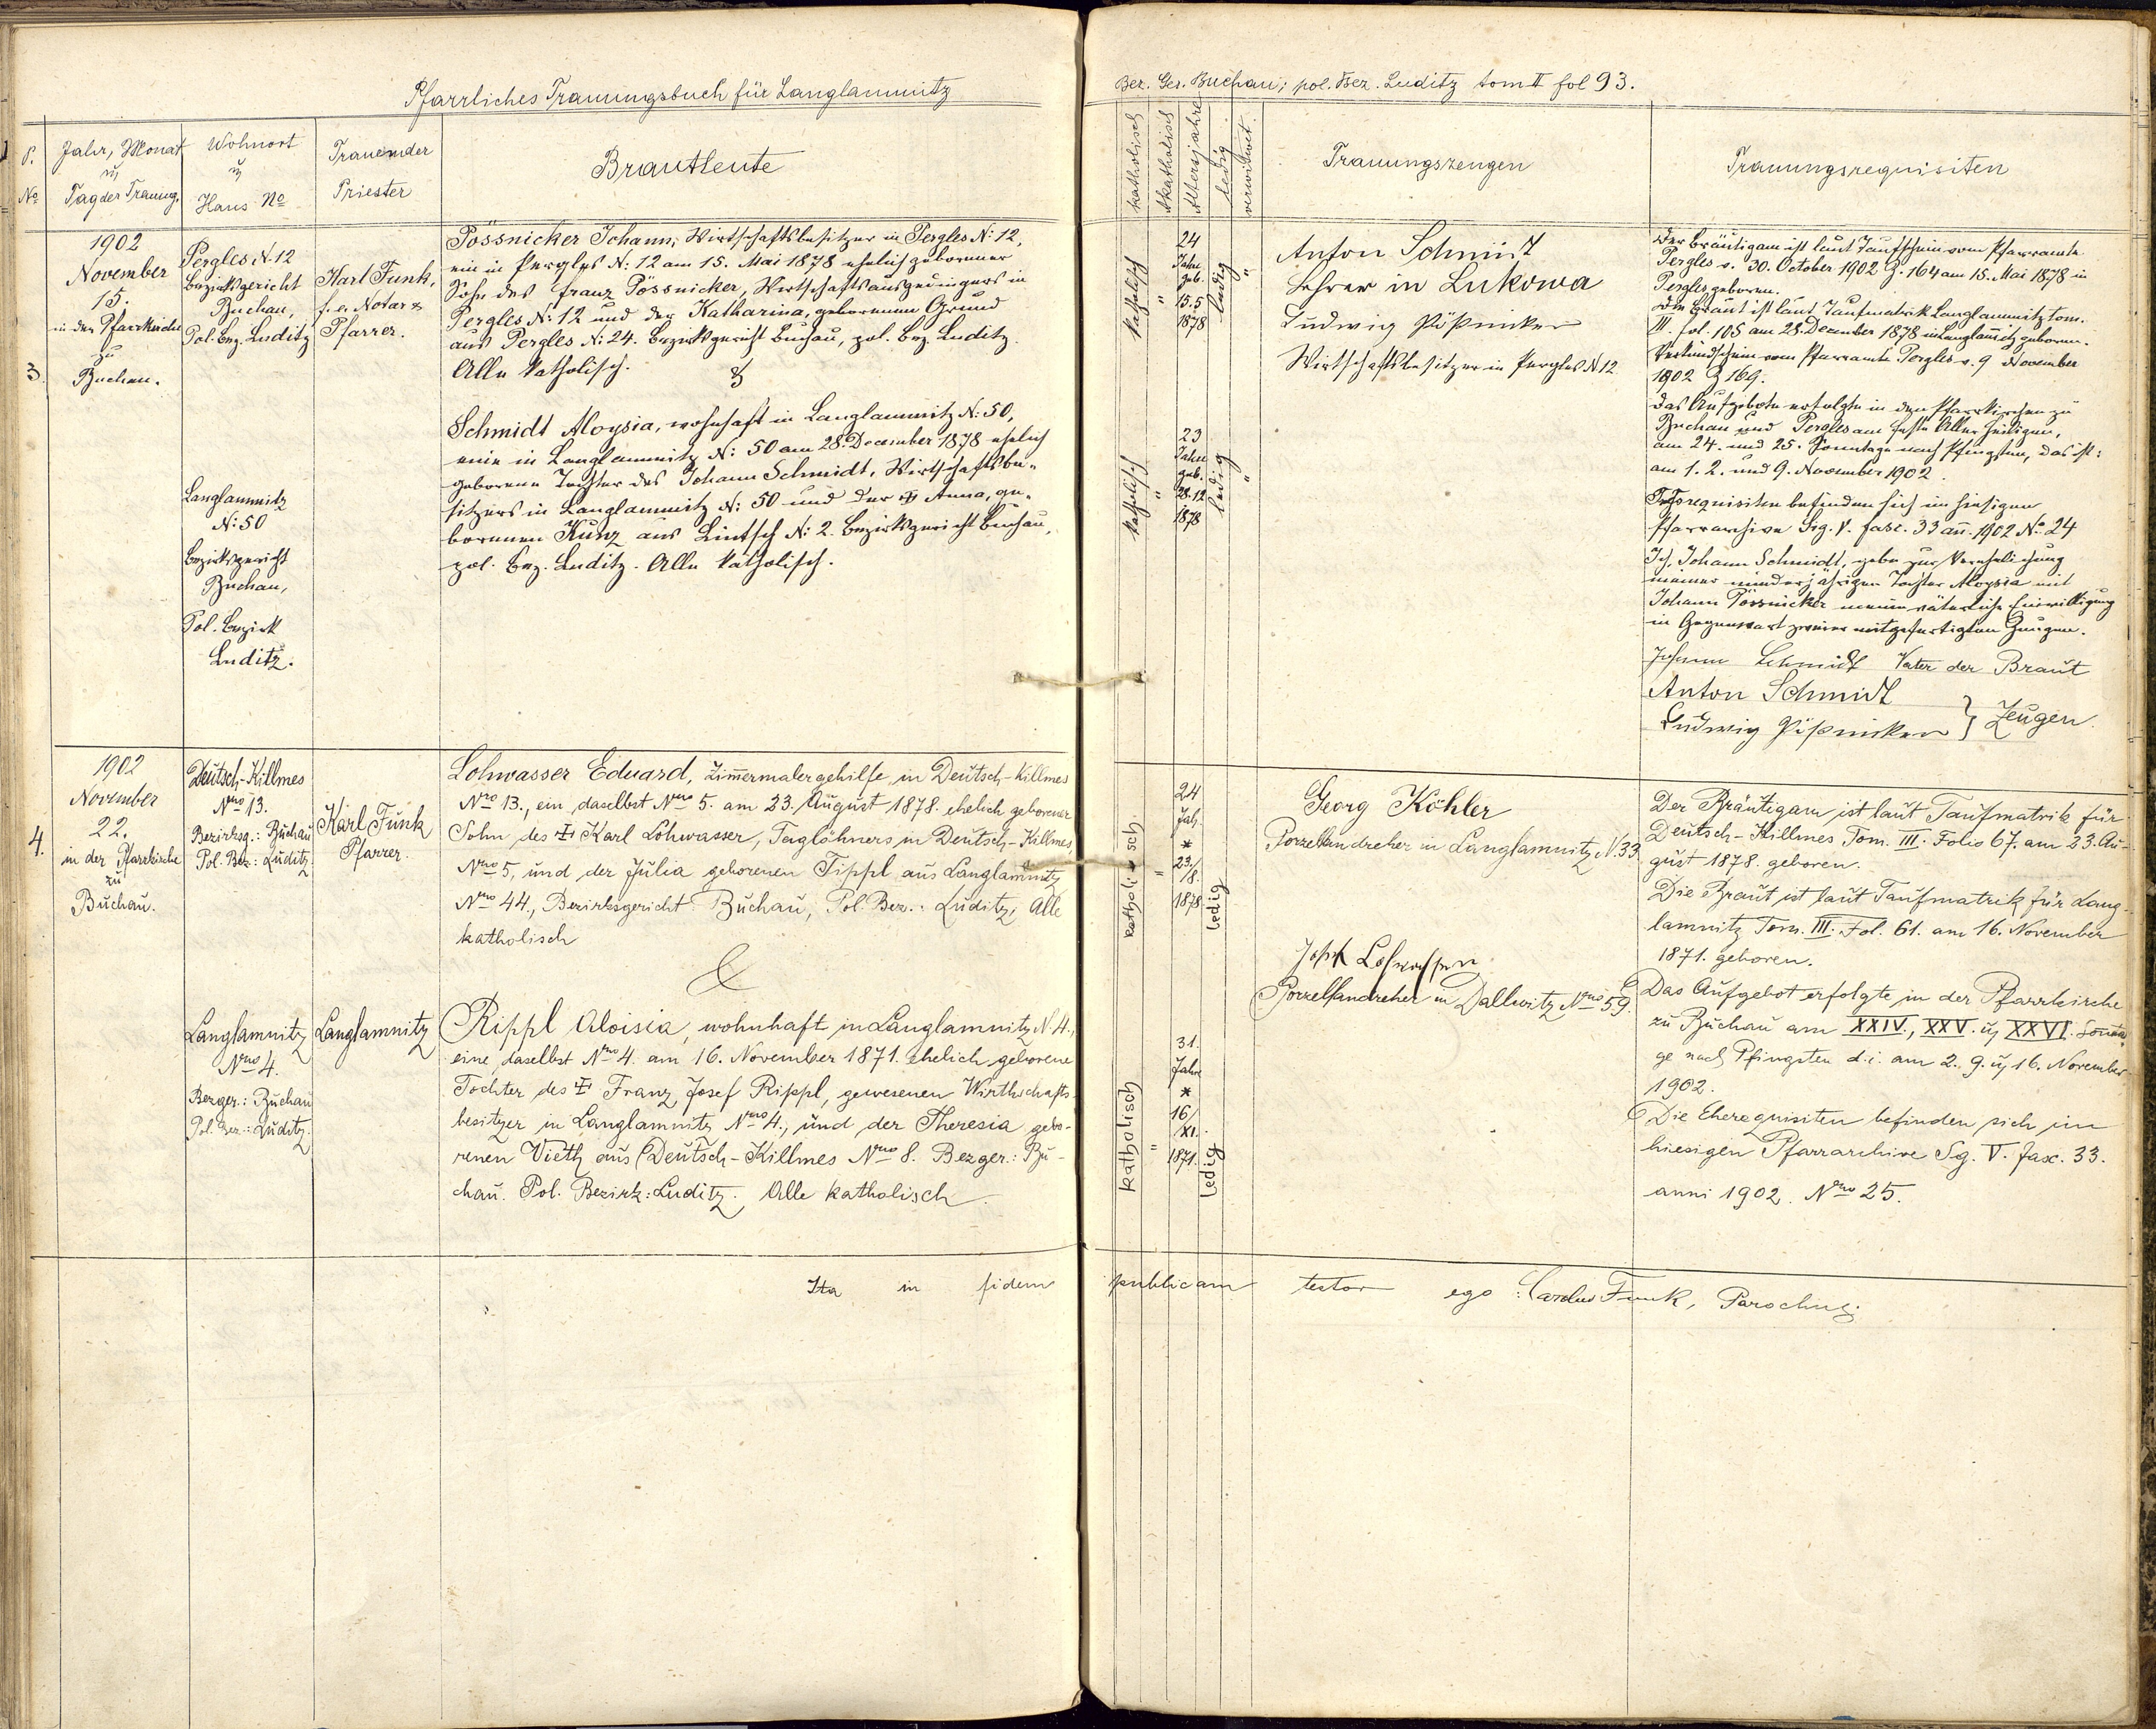 Pfarrliches Trauungsbuch für Langlammitz
P. No
Jahr, Monat u Tag der Trauung.
Wohnort u Haus No
Trauender Priester
Brautleute
3.
1902
November
15.
in der Pfarrkirche
zu
Buchau.
Pergles N. 12
Bezirksgericht
Buchau,
Pol. Bez. Luditz
Langlammitz
N: 50
Bezirksgericht
Buchau,
Pol. Bezirk
Luditz.
Karl Funk,
f. e. Notar &
Pfarrer.
Pössnicker Johann, Wirtschaftsbesitzer in Pergles N: 12,
ein in Pergles N: 12 am 15. Mai 1878 ehelich geborener
Sohn des Franz Pössnicker, Wirtschaftsausgedingers in
Pergles N: 12 und der Katharina, geborenen Grund
aus Pergles N: 24. Bezirksgericht Buchau, pol. Bez. Luditz.
Alle katholisch.
&
Schmidt Aloysia, wohnhaft in Langlammitz N: 50,
eine in Langlammitz N: 50 am 28. December 1878 ehelich
geborene Tochter des Johann Schmidt, Wirtschaftsbe-
sitzers in Langlammitz N: 50 und der ✝ Anna, ge-
borenen Kunz aus Lintsch N: 2. Bezirksgericht Buchau,
pol. Bez. Luditz. Alle katholisch.
4.
1902
November
22.
in der Pfarrkirche
zu
Buchau.
Deutsch-Killmes
Nro 13.
Bezirksg.: Buchau
Pol. Bez.: Luditz
Langlamnitz
Nro 4.
Bezger.: Buchau
Pol. Bez.: Luditz.
Karl Funk
Pfarrer.
Langlamnitz
Lohwasser Eduard, Zimmermalergehilfe in Deutsch-Killmes
Nro 13., ein daselbst Nro 5. am 23. August 1878. ehelich geborener
Sohn des ✝ Karl Lohwasser, Taglöhners in Deutsch-Killmes,
Nro 5, und der Julia geborenen Tippl aus Langlamnitz
Nro 44., Bezirksgericht Buchau, Pol. Bez.: Luditz, Alle
katholisch
&
Rippl Aloisia, wohnhaft in Langlamnitz N. 4.,
eine daselbst Nro 4. am 16. November 1871. ehelich geborene
Tochter des ✝ Franz Josef Rippl, gewesenen Wirthschafts-
besitzer in Langlamnitz Nro 4., und der Theresia gebo-
renen Vieth aus Deutsch-Killmes Nro 8. Bezger.: Bu-
chau. Pol. Bezirk: Luditz. Alle katholisch.
Ita in fidem
Bez. Ges. Buchau; pol. Bez. Luditz tom II fol 93.
katholisch
Akatholisch
Altersjahre
ledig
verwitwet.
Trauungszeugen
Trauungsrequisiten
katholisch
"
24
Jahre
geb.
15.5
1878
ledig
"
katholisch
"
23
Jahre
geb.
28.12
1878
ledig
"
Anton Schmidt
Lehrer in Lukowa
Ludwig Pößniker
Wirtschaftsbesitzer in Pergles N 12
Der Bräutigam ist laut Taufschein vom Pfarramte
Pergles v. 30. October 1902 Z. 164 am 15. Mai 1878 in
Pergles geboren.
Die Braut ist laut Taufmatrik Langlammitz tom.
III. fol. 105 am 28. Dezember 1878 in Langlamitz geboren.
Verkündschein vom Pfarramte Pergles v. 9 November
1902 Z 169.
Das Aufgebote erfolgte in den Pfarrkirchen zu
Buchau und Pergles am Feste Aller Heiligen,
am 24. und 25. Sonntage nach Pfingsten, das ist:
am 1. 2. und 9. November 1902.
requisiten befinden sich im hiesigen
Pfarrarchive Sig. V. fasc. 33 an. 1902 No 24
Ich, Johann Schmidt, gebe zur Verehelichung
meiner minderjährigen Tochter Aloysia mit
Johann Pössnicker meine väterliche Einwilligung
in Gegenwart zweier mitgefertigten Zeugen.
Johann Schmidt Vater der Braut
Anton Schmidt
Ludwig Pößniker } Zeugen.
katholisch
"
24
Jah.
*
23./
/8.
1878
ledig
katholisch
"
31.
Jahre
*
16/
XI.
1871.
ledig
Georg Köhler
Porzellandreher in Langlamnitz N. 33
Josef Lohwasser
Porzellandreher in Dallwitz Nro 59.
Der Bräutigam ist laut Taufmatrik für
Deutsch-Killmes Tom. III. Folio 67. am 23. Au-
gust 1878. geboren.
Die Braut ist laut Taufmatrik für Lang-
lamnitz Tom. III. Fol. 61. am 16. November
1871. geboren.
Das Aufgebot erfolgte in der Pfarrkirche
zu Buchau am XXIV., XXV. u XXVI. Sonta-
ge nach Pfingsten d. i. am 2. 9. u 16. November
1902.
Die Eherequisiten befinden sich im
hiesigen Pfarrarchive Sg. V. fasc. 33.
anni 1902. Nro 25.
publicam testor ego: Carolus Funk, Parochus.